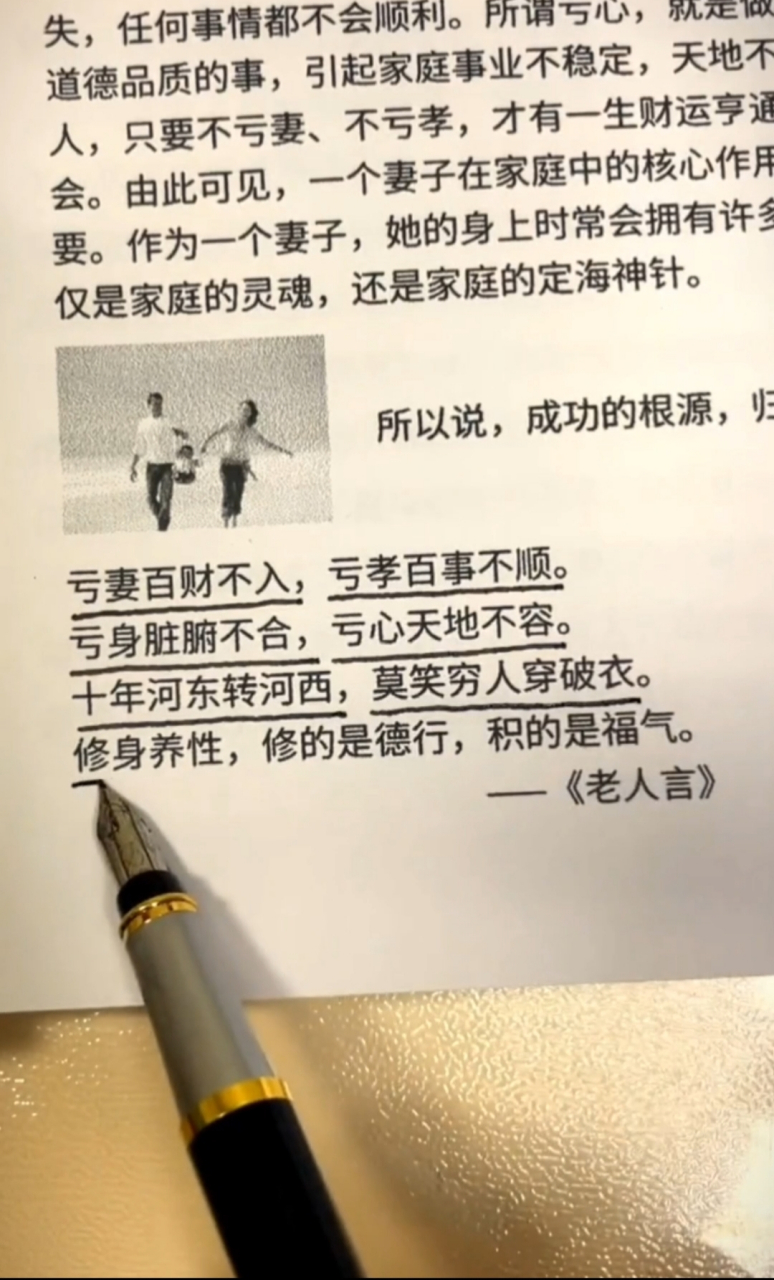 失，任何事情都不会顺利。所谓亏心，就是做
道德品质的事，引起家庭事业不稳定，天地不
人，只要不亏妻、不亏孝，才有一生财运亨通
会。由此可见，一个妻子在家庭中的核心作用
要。作为一个妻子，她的身上时常会拥有许多
仅是家庭的灵魂，还是家庭的定海神针。
所以说，成功的根源，归
亏妻百财不入，亏孝百事不顺。
亏身脏腑不合，亏心天地不容。
十年河东转河西，莫笑穷人穿破衣。
修身养性，修的是德行，积的是福气。
——《老人言》